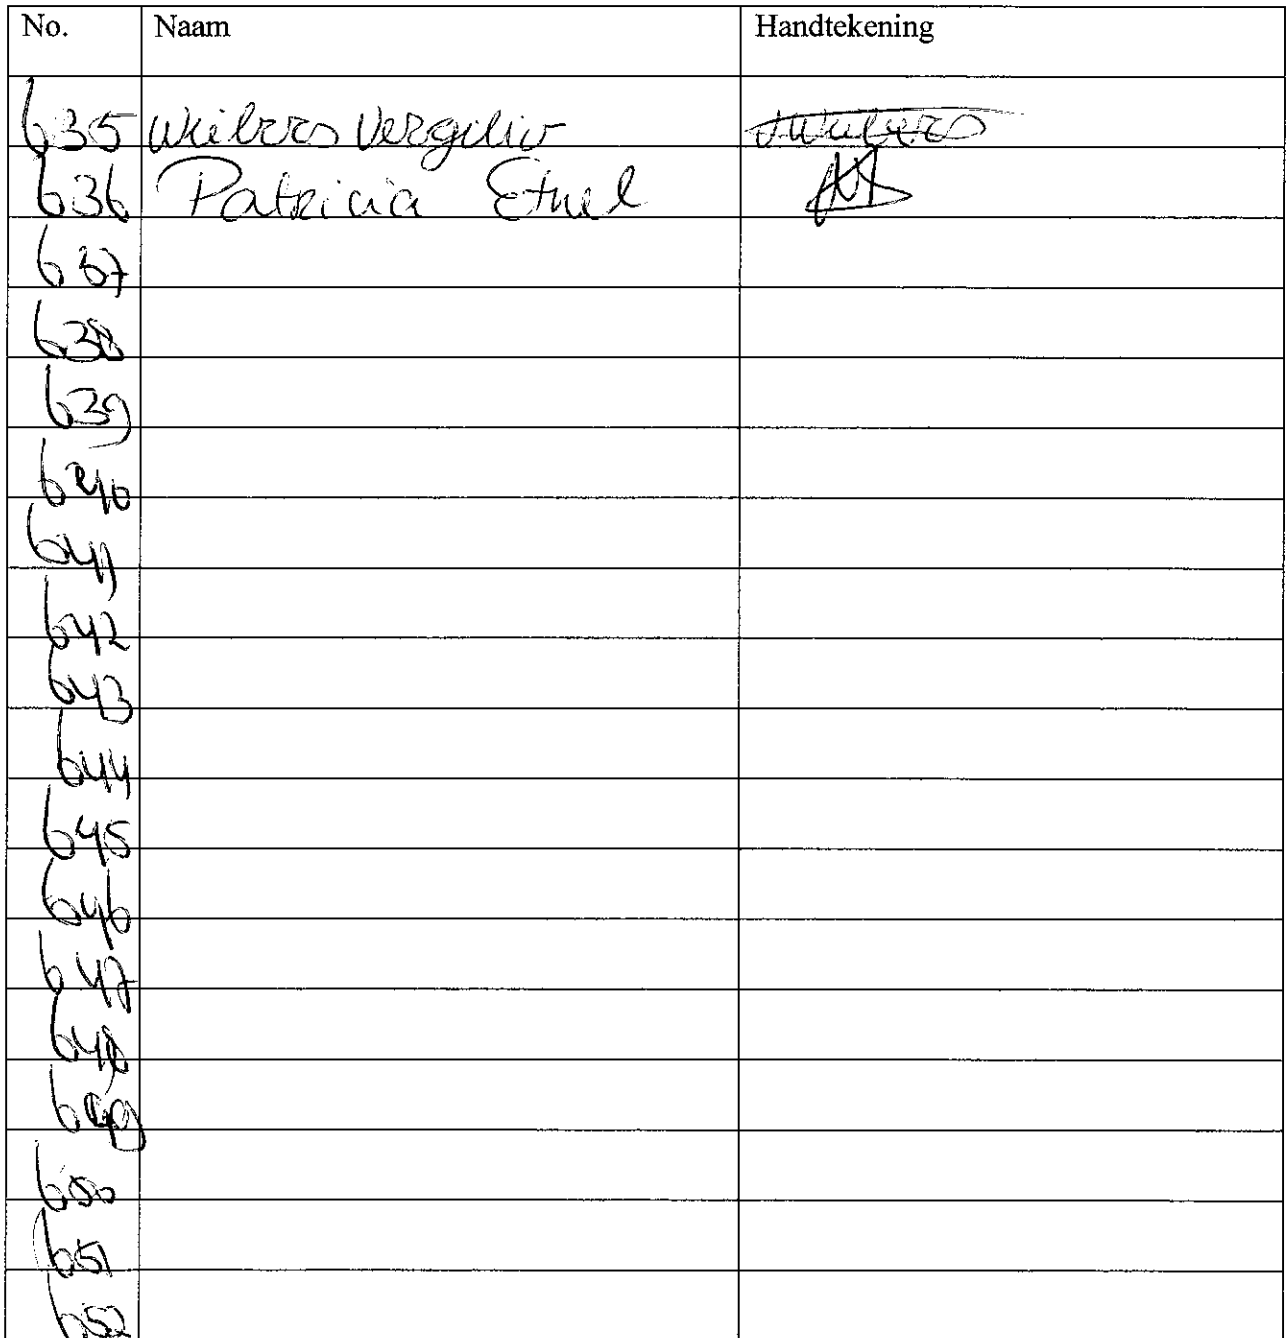 No. Naam Handtekening
635
636 Patricia
637
638
639
640
641
642
643
644
645
646
647
648
649
650
651
652